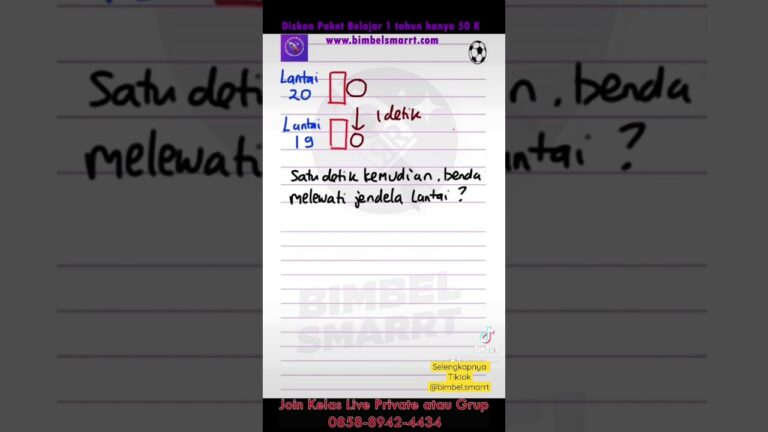 Diskon Paket Belajar 1 tahun hanya 50 K
www.bimbelsmarrt.com
Lantai
20
1 detik
Lantai
19
Satu detik kemudian, benda
melewati jendela lantai ?
BIMBEL
SMARRT
Selengkapnya
Tiktok
@bimbel.smarrt
Join Kelas Live Private atau Grup
0858-8942-4434
Satu deti
n, benda
melewati
ntai ?